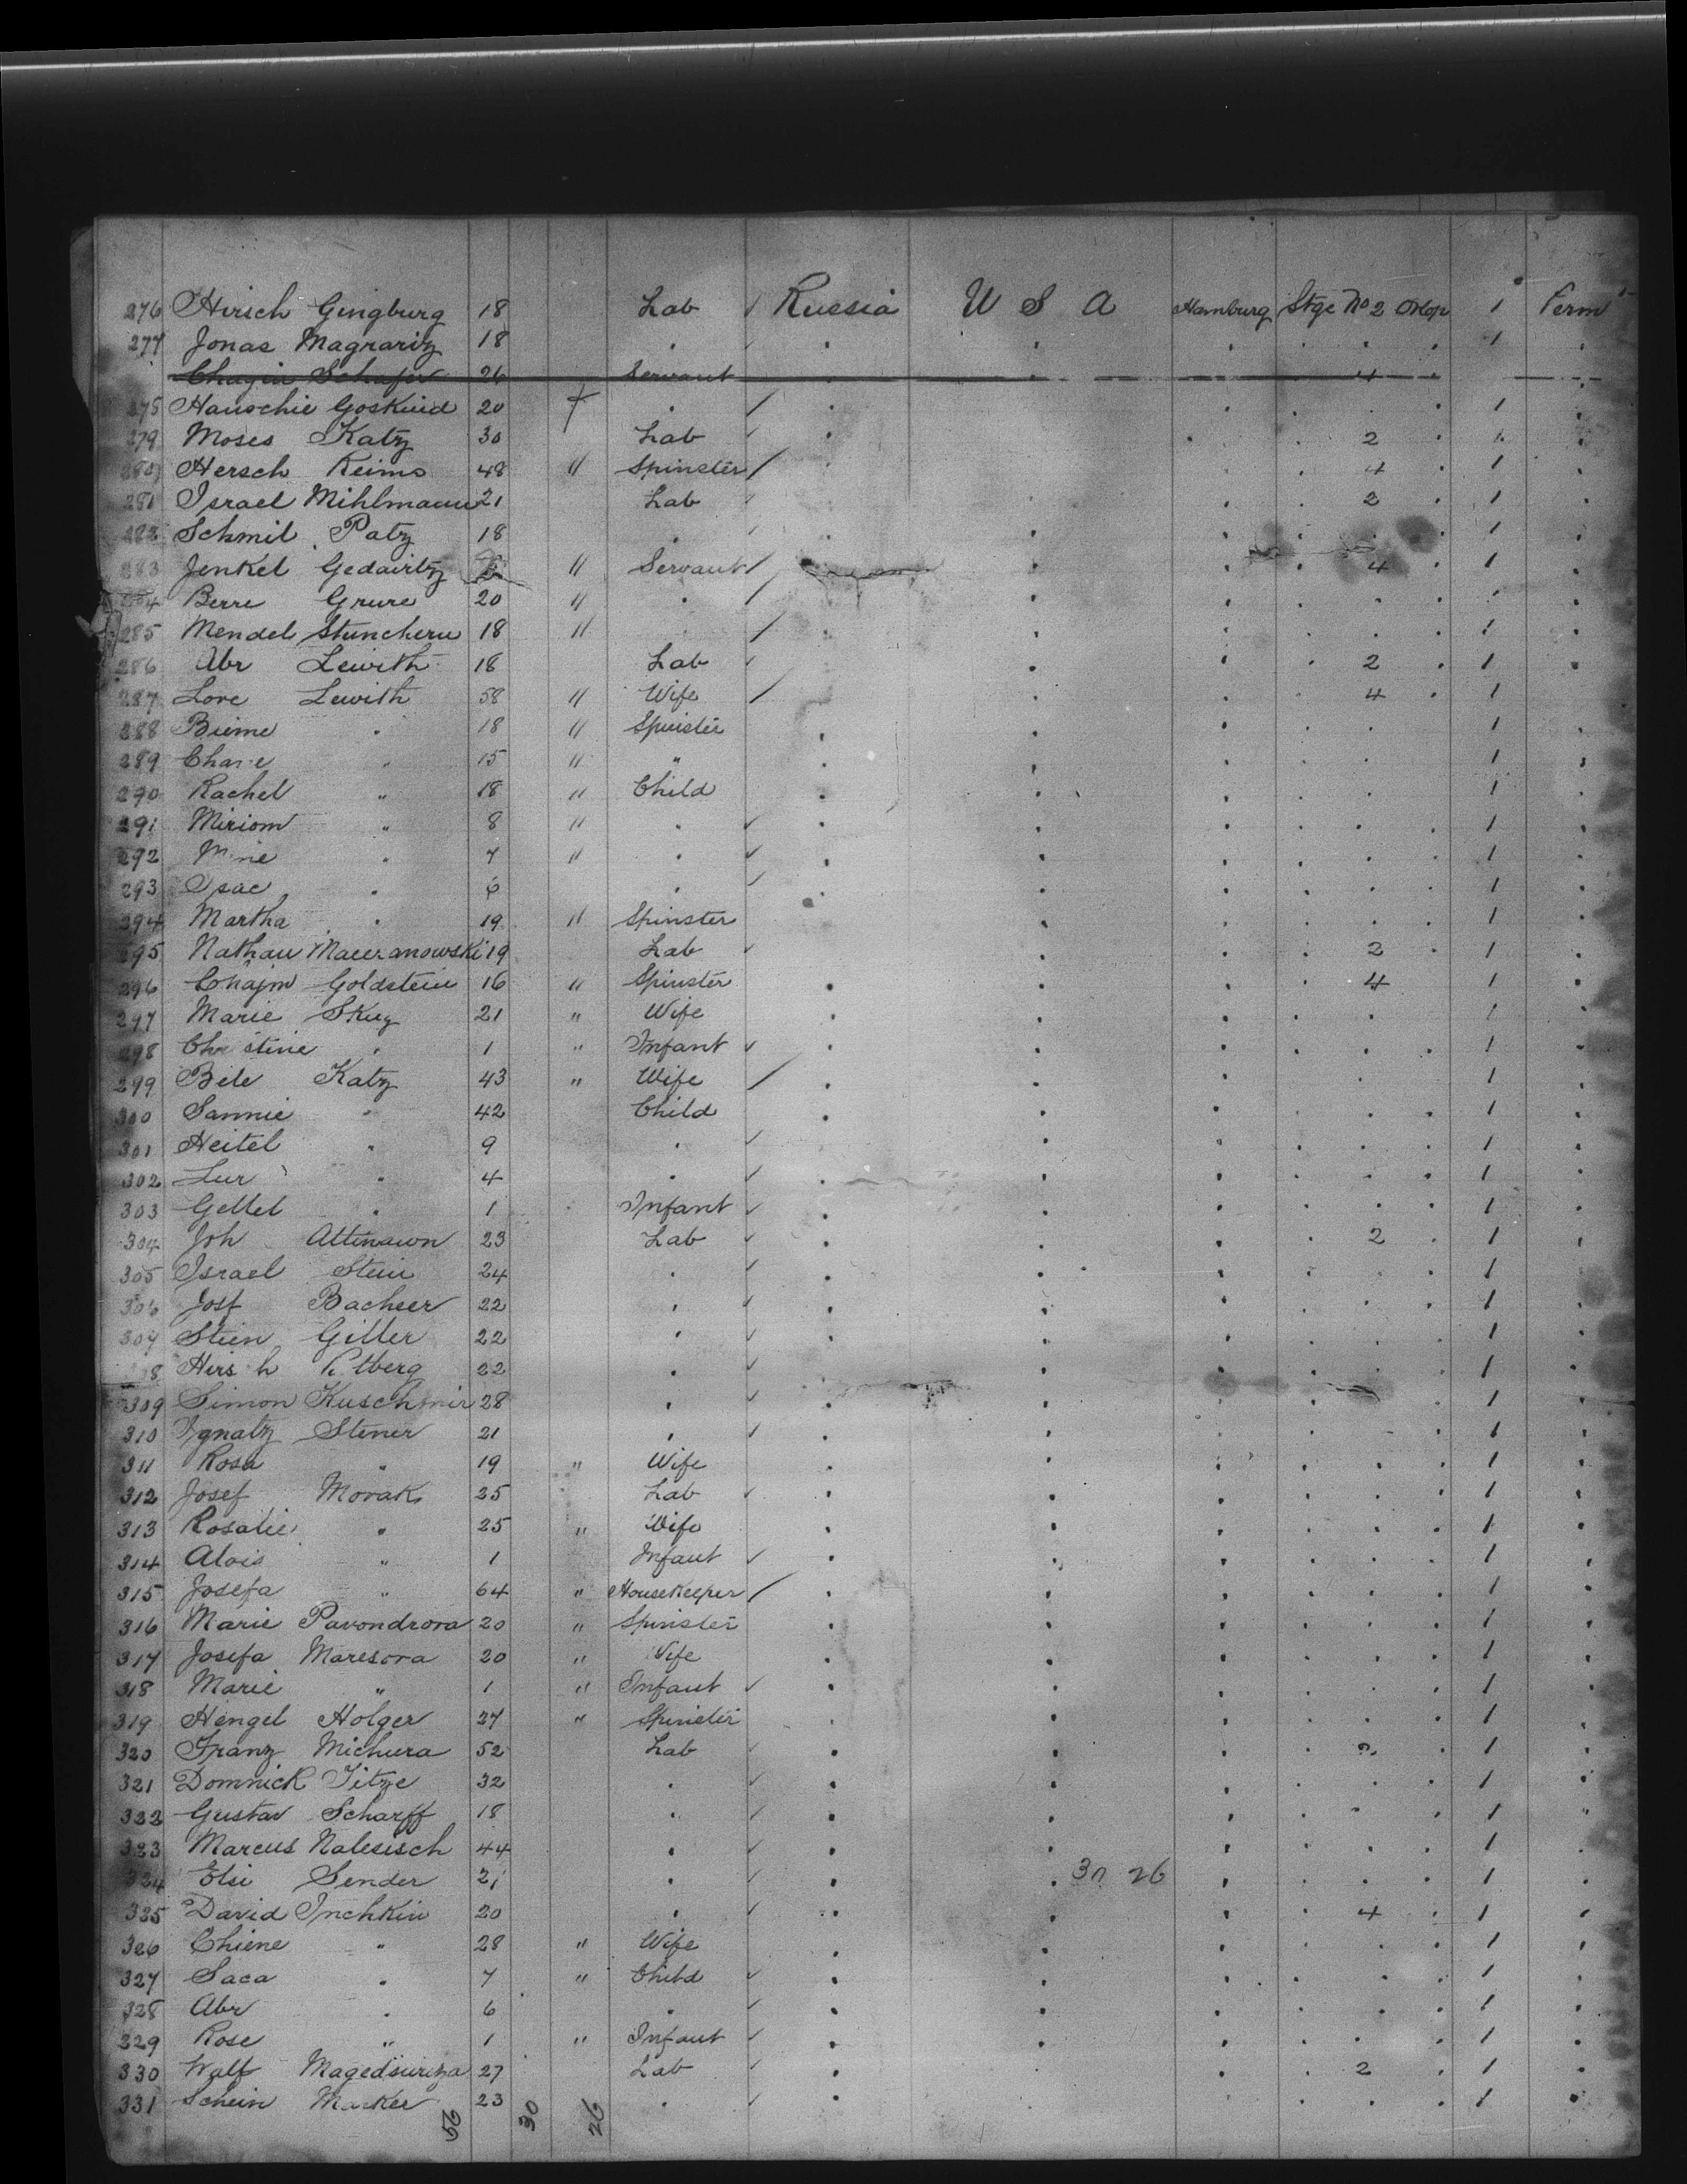 276 Hirsch Gingburg 18 Lab / Russia U S A Hamburg Stge No 2 1 Perm
277 Jonas Magrariz 18 . . . . . . 1 .
Chagin Schafer 26 Servant . . 4 .
Hanschie Goskind 20 . / . . . . 1 .
279 Moses Katz 30 Lab . 2 . 1 .
280 Hersch Reims 48 " Spinster / . 4 1 .
281 Israel Mihlmann 21 Lab . 2 . 1 .
282 Schmil Patz 18 . . 1 .
283 Jenkel Gedairtz " Servant / . 4 1 .
Berre Grure 20 " . / . . . .
285 Mendel Stuncheru 18 " / . . . . 1 .
286 Abr Lewith 18 Lab . . 2 . 1 .
287 Lore Lewith 58 " Wife / . . 4 . 1
288 Bieme . 18 " Spinster . . . 1 .
289 15 " " . . . 1 .
290 Rachel " 18 " Child . . . 1 .
291 Miriom " 8 " . . . . 1 .
292 . 7 " . . . . 1 .
293 Isac . 6 . . . . 1 .
294 Martha . 19 " Spinster . . . 1 .
295 Nathan 19 Lab . . 2 . 1 .
296 Chajm Goldstein 16 " Spinster . . 4 1 .
297 Marie Skuz 21 " Wife . . . 1 .
298 . 1 " Infant . . . 1 .
299 Bele Katz 43 " Wife / . . . 1 .
300 Sannie " 42 Child . . . 1 .
301 Heitel " 9 . . . . 1 .
302 Lur " 4 . . . . 1 .
303 Gettel " 1 Infant . . . 1 .
304 Joh Attinawn 23 Lab . . 2 . 1 .
305 Israel Stein 24 . . . . 1 .
306 Josf Bacheer 22 . . . . 1 .
307 Stein Giller 22 . . . . 1 .
22 . . . 1 .
309 Simon Kuschmir 28 . . . . 1 .
310 Ignatz Stener 21 . . . . 1 .
311 Rosa " 19 " Wife . . . 1 .
312 Josef Morak 25 Lab . . . 1 .
313 Rosalie " 25 " Wife . . . 1 .
314 Alois " 1 Infant . . . 1 .
315 Josefa " 64 " Housekeeper / . . . 1 .
316 Marie Pavondrova 20 " Spinster . . . 1 .
317 Josefa Maresova 20 " Wife . . . 1 .
318 Marie " 1 " Infant . . . 1 .
319 Hengel Holger 27 " Spinster . . . 1 .
320 Franz Michura 52 Lab . . 2 . 1 .
321 Domnick Titze 32 . . . . 1 .
322 Gustav Scharff 18 . . . . 1 "
323 Marcus Nalesisch 44 . . . . 1 .
324 Elsi Sender 21 . . . 30 26 . . 1 .
325 David Inchkin 20 . . . 4 . 1 .
326 Chiene " 28 " Wife . . . 1 .
327 Saca . 7 " Child . . . 1 .
328 Abr . 6 . . . . 1 .
329 Rose " 1 " Infant . . . 1 .
330 Walf 27 Lab . . 2 . 1 .
331 Schein Marker 23 . . . . 1 .
30 26